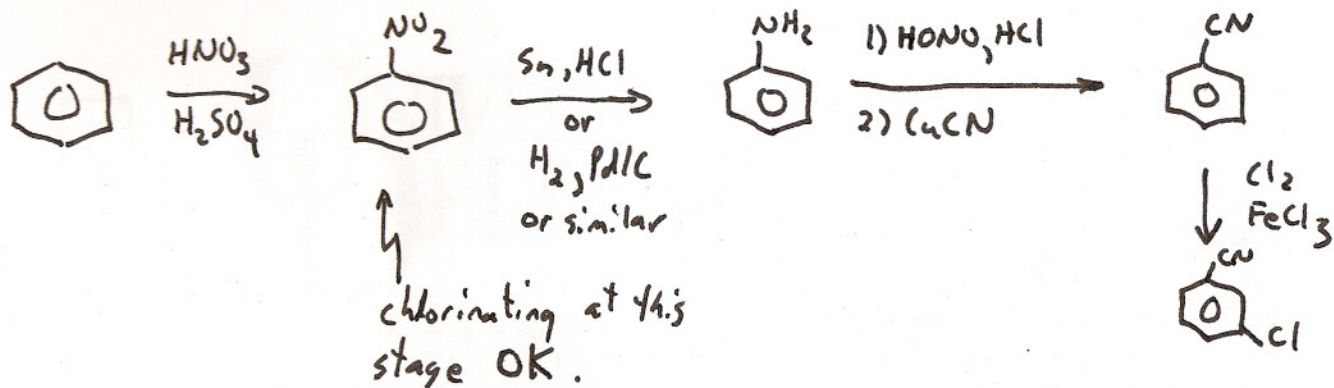 HNO3
H2SO4
NO2
Sn, HCl
or
H2, Pd/C
or similar
NH2
1) HONO, HCl
2) CuCN
CN
Cl2
FeCl3
CN
Cl
chlorinating at this
stage OK.